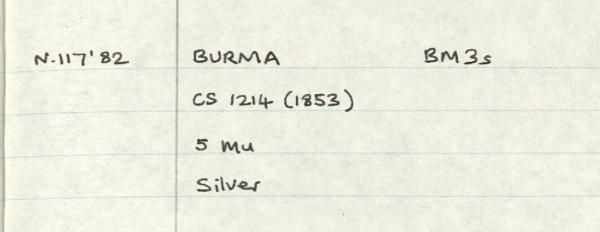 N.117'82 BURMA BM3s
CS 1214 (1853)
5 Mu
Silver